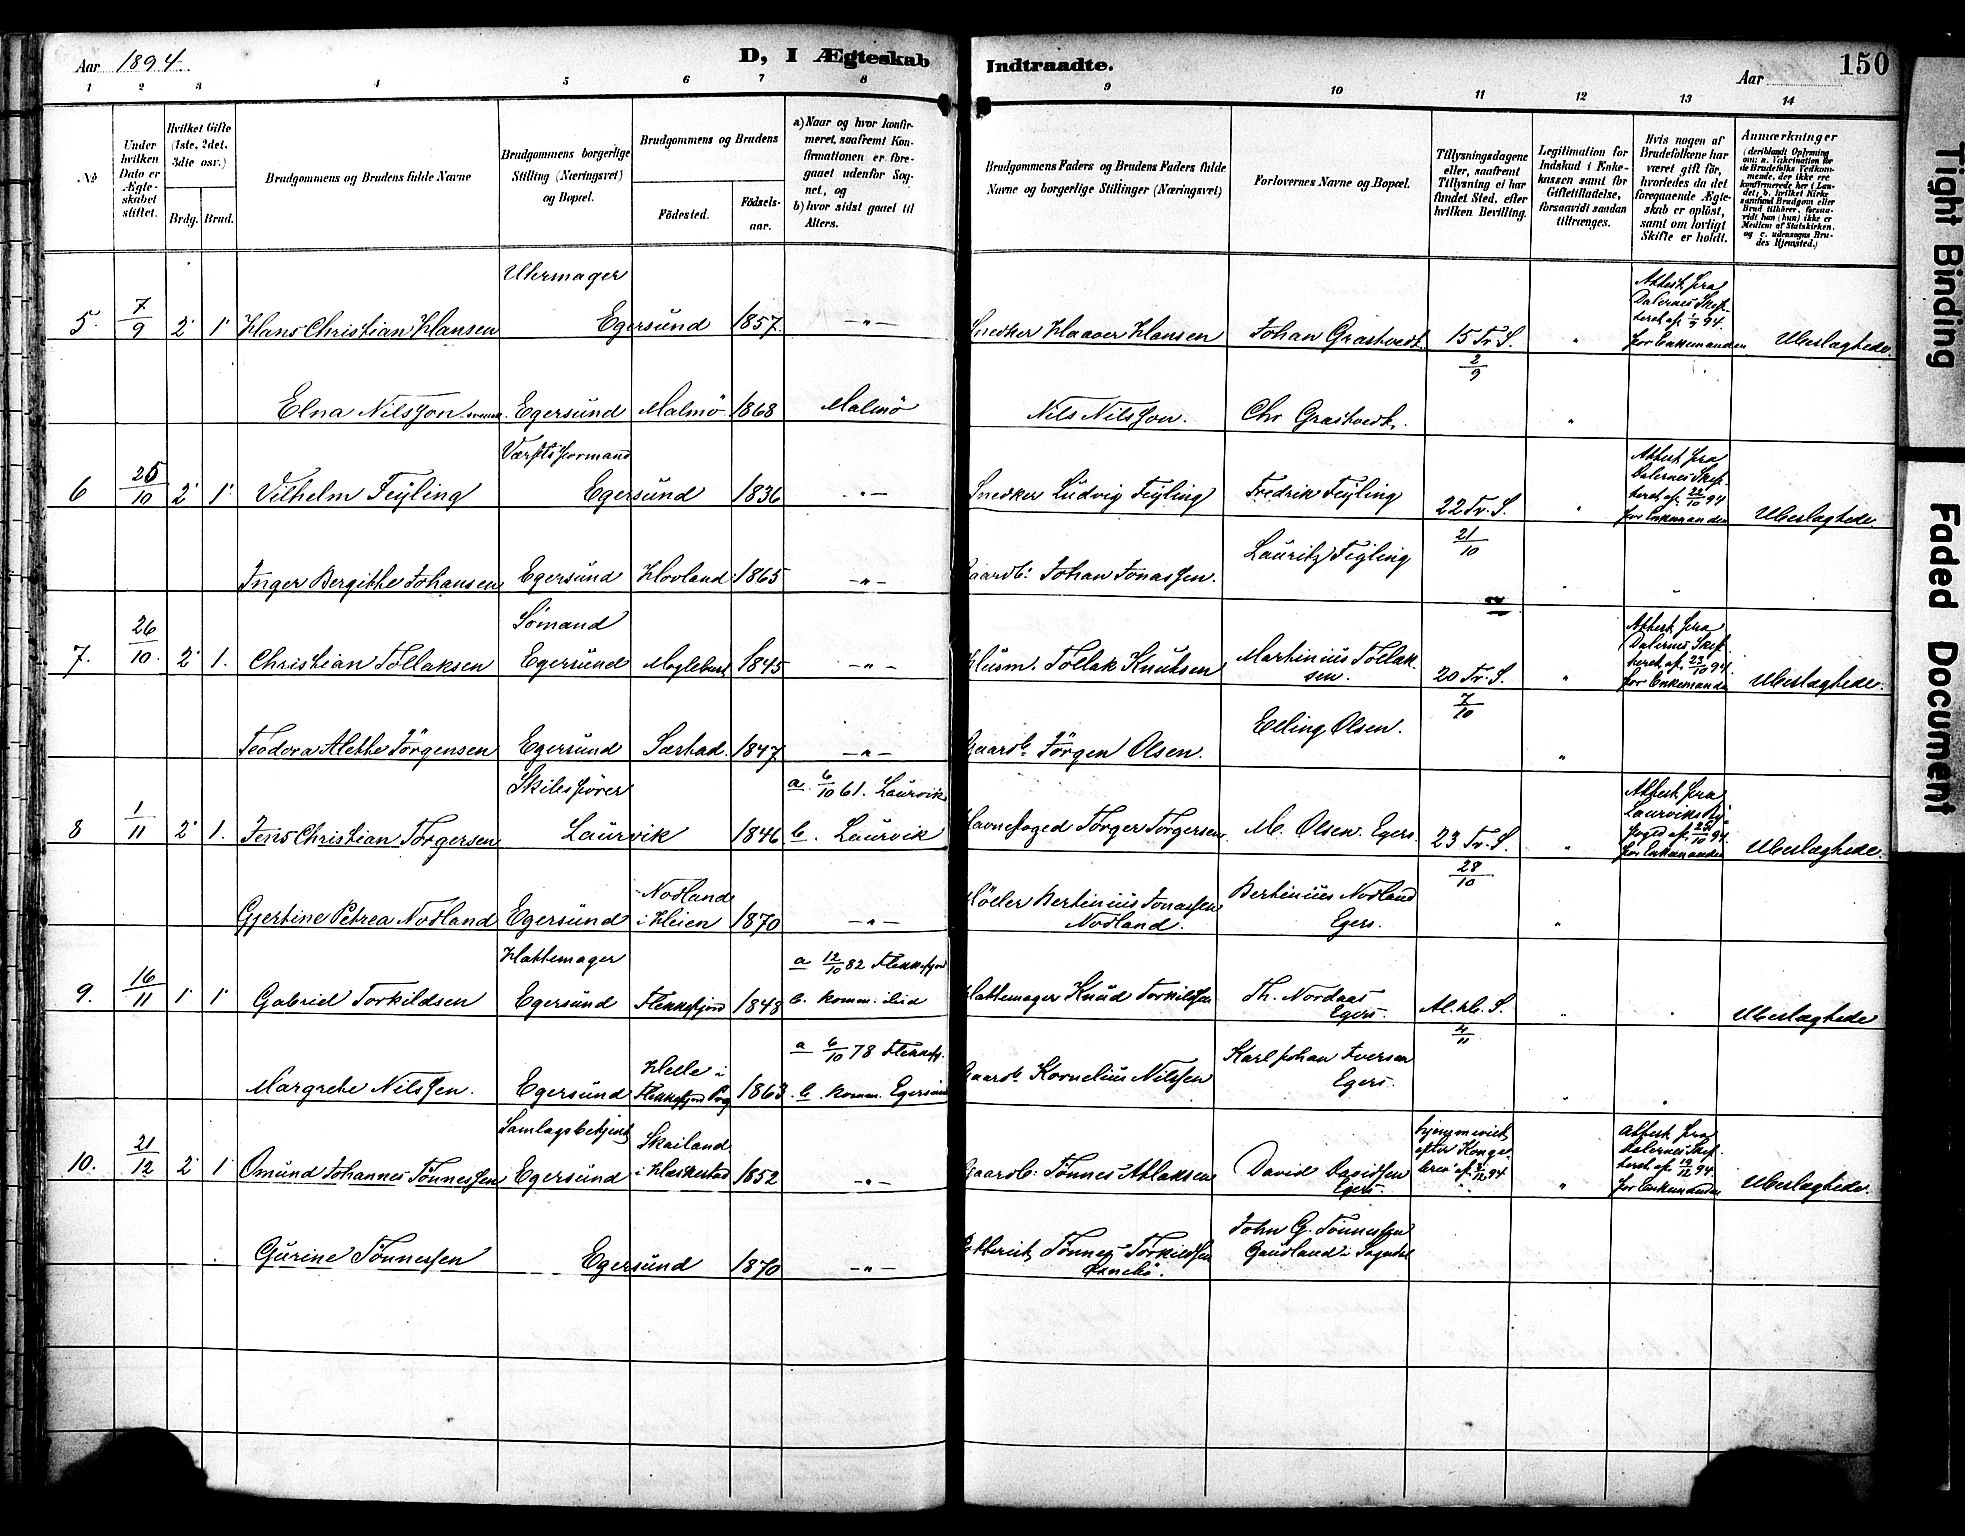 Aar 1894.
D, I Ægteskab
Indtraadte.
Aar
150
1 2 3 4 5 6 7 8
9 10 11 12 13 14
№
Under hvilken Dato er Ægteskabet stiftet.
Hvilket Gifte (1ste, 2det, 3die osv.)
Brdg. Brud.
Brudgommens og Brudens fulde Navne
Brudgommens borgerlige Stilling (Næringsvei) og Bopæl.
Brudgommens og Brudens
Fødested.
Fødselsaar.
a) Naar og hvor konfirmeret, saafremt Konfirmationen er foregaaet udenfor Sognet, og
b) hvor sidst gaaet til Alters.
Brudgommens Faders og Brudens Faders fulde Navne og borgerlige Stillinger (Næringsvei)
Forlovernes Navne og Bopæl.
Tillysningsdagene eller, saafremt Tillysning ei har fundet Sted, efter hvilken Bevilling.
Legitimation for Indskud i Enkekassen samt for Giftetilladelse, forsaavidt saadan tiltrænges.
Hvis nogen af Brudefolkene har været gift før, hvorledes da det foregaaende Ægteskab er opløst, samt om lovligt Skifte er holdt.
Anmærkninger
(deriblandt Oplysning om: a. Vakcination for de Brudefolks Vedkommende, der ikke ere konfirmerede her i Landet; b. hvilket Kirkesamfund Brudgom eller Brud tilhører, forsaavidt han (hun) ikke er Medlem af Statskirken, og c. udensogns Brudes Hjemsted.)
Uhrmager
5. 7/9 2' 1' Hans Christian Hansen Egersund 1857. —„— Snedker Haaver Hansen Johan Grastvedt. 15 Tr. S. „ Attest fra Dalernes Skifteret af 1/9 94. for Enkemanden Ubeslægtede.
2/9
Elna Nilsson Egersund Malmö 1868 Malmö Nils Nilsson. Chr Grastvedt. „
Værftsformand
6 25/10 2' 1' Vilhelm Feyling Egersund 1836 —„— Snedker Ludvig Feyling Fredrik Feyling 22 Tr. S. „ Attest fra Dalernes Skifteret af 22/10 94 for Enkemanden Ubeslægtede.
21/10
Inger Bergitte Johansen Egersund Hovland 1865 —„— Gaardb. Johan Jonassen. Lauritz Feyling
Sømand
7. 26/10. 2' 1. Christian Tollaksen Egersund 1845 —„— Husm. Tollak Knutsen Martinius Tollaksen. 20 Tr. S. „ Attest fra Dalernes Skifteret af 23/10 94. for Enkemanden Ubeslægtede.
7/10
Teodora Alette Jörgensen Egersund Sæstad. 1847 —„— Gaardb. Jörgen Olsen. Elling Olsen. „
Skibsfører
8 1/11 2' 1. Jens Christian Torgersen Laurvik 1846 a. 6/10 61. Laurvik b. Laurvik Havnefoged Torger Torgersen. M. Olsen. Egers. 23 Tr. S. „ Attest fra Laurviks Byfoged af 25/10 94. for Enkemanden Ubeslægtede.
28/10
Gjertine Petrea Nodland Egersund Nodland i Heien 1870 —„— Møller Bertinius Jonassen Nodland. Bertinius Nodland Egers. „
Hattemager
9. 16/11 1' 1' Gabriel Torkildsen Egersund Flekkefjord 1848 a 12/10 82 Flekkefjord b. komm. ibid Hattemager Knud Torkildsen Th. Nordaas Egers. Al. hl. S. Ubeslægtede
4/11
Margrete Nilssen. Egersund Helle i Flekkefjord Prg 1863 a 6/10 78 Flekkefj. b. komm. Egersund Gaardb. Kornelius Nilssen Karl Johan Iversen Egers.
Samlagsbetjent
10. 21/12 2' 1' Omund Johannes Tönnessen Egersund Skailand i Haskestad 1852 —„— Gaardb. Tönnes Atlaksen David Davidsen Egers. hjemmeviet efter Kongebrev af 94 „ Attest fra Dalernes Skifteret af 19/12 94 for Enkemanden Ubeslægtede.
Gurine Tönnessen Egersund 1870 —„— Tönnes Torkildsen John G. Tönnessen Gaudland i Sogndal
Tight Binding
Faded Document